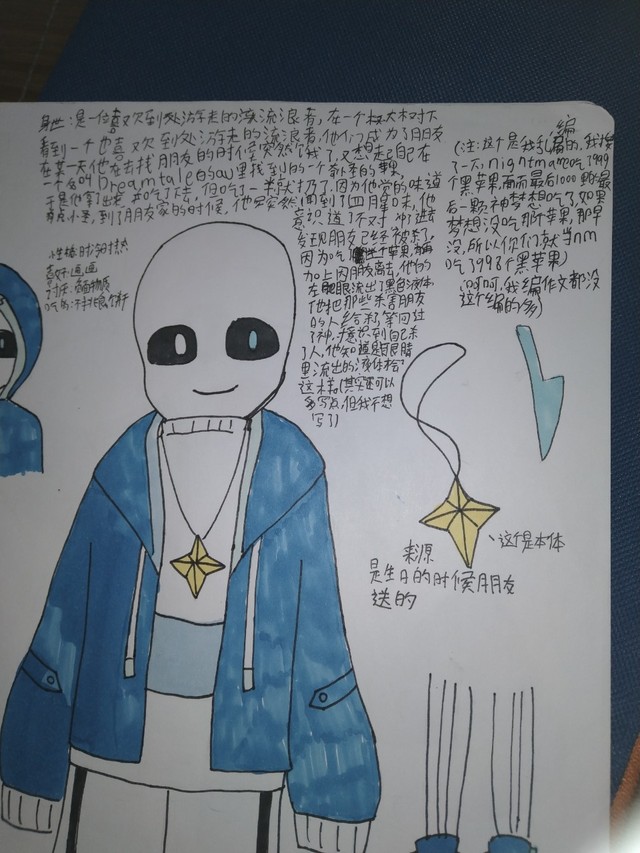 身世:是一位喜欢到处游走的流浪者,在一个大树下
看到一个也喜欢到处游走的流浪者,他们成为了朋友
在某一天他在去找朋友的时候突然饿了,又想起自己在
一个名叫Dreamtale的au里找到的一个奇怪的果,
于是他拿出来,吃了下去,但吃了一半就扔了,因为他觉的味道
有点小苦,到了朋友家的时候,他突然闻到了血腥味,他
意识道了不对,冲进去
发现朋友已经被杀了,
因为吃苹果,再
加上因朋友离去,他的
左眼流出了黑色液体
他把那些杀害朋友
的人给杀了,等回过
了神,才意识到自己杀
了人,他知道是眼睛
里流出的液体
这样(其实还可以
多写点,但我不想
写了)
编
(注:这个是我乱的,我
了一天,nightmare吃了999
个黑苹果,而最后1000
后一颗神梦想吃了,如果
梦想没吃那个苹果,那是
没,所以你们就当nm
吃了998个黑苹果)
(呵呵,我编作文都没
这个编的多)
性格:时冷时热
喜好:逛逛
讨厌:黏物质
吃的:不挑食
这个是本体
来源
是生日的时候朋友
送的